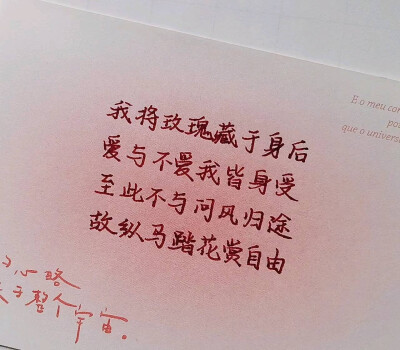 E o meu cor
que o univers
我将玫瑰藏于身后
爱与不爱我皆身受
至此不与问风归途
故纵马踏花赏自由
心略
于整个宇宙。